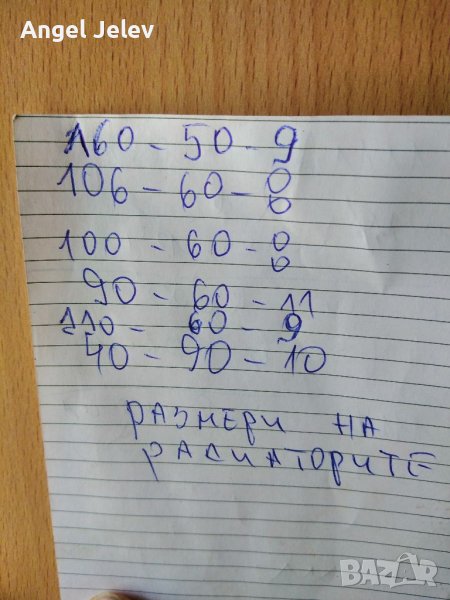 Angel Jelev
160 - 50 - 9
106 - 60 - 8
100 - 60 - 8
90 - 60 - 11
110 - 60 - 9
40 - 90 - 10
РАЗМЕРИ НА
РАДИАТОРИТЕ
BAZAR